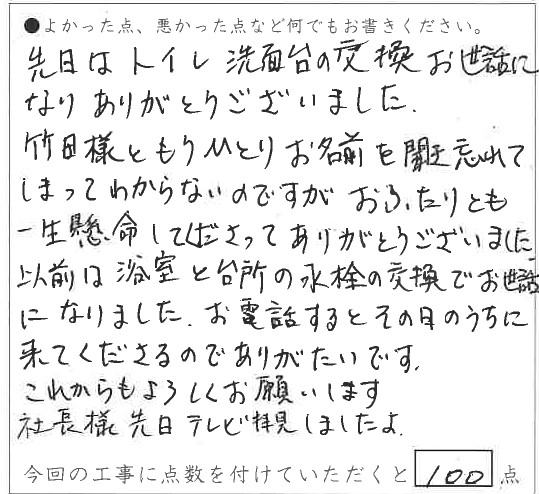 ●よかった点、悪かった点など何でもお書きください。
先日は トイレ 洗面台の交換 お世話に
なり ありがとうございました.
竹田様ともうひとり お名前を聞き忘れて
しまってわからないのですが おふたりとも
一生懸命してくださってありがとうございました
以前は 浴室と台所の水栓の交換でお世話
になりました. お電話するとその日のうちに
来てくださるのでありがたいです.
これからもよろしくお願いします
社長様 先日 テレビ拝見しましたよ.
今回の工事に点数を付けていただくと 100 点